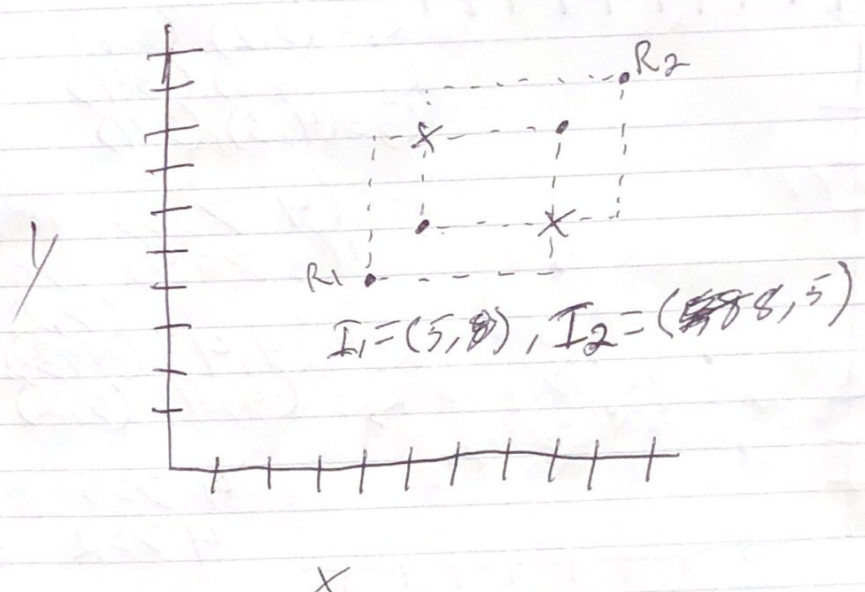 R2
y
R1
I1=(5,8), I2=(8,5)
x